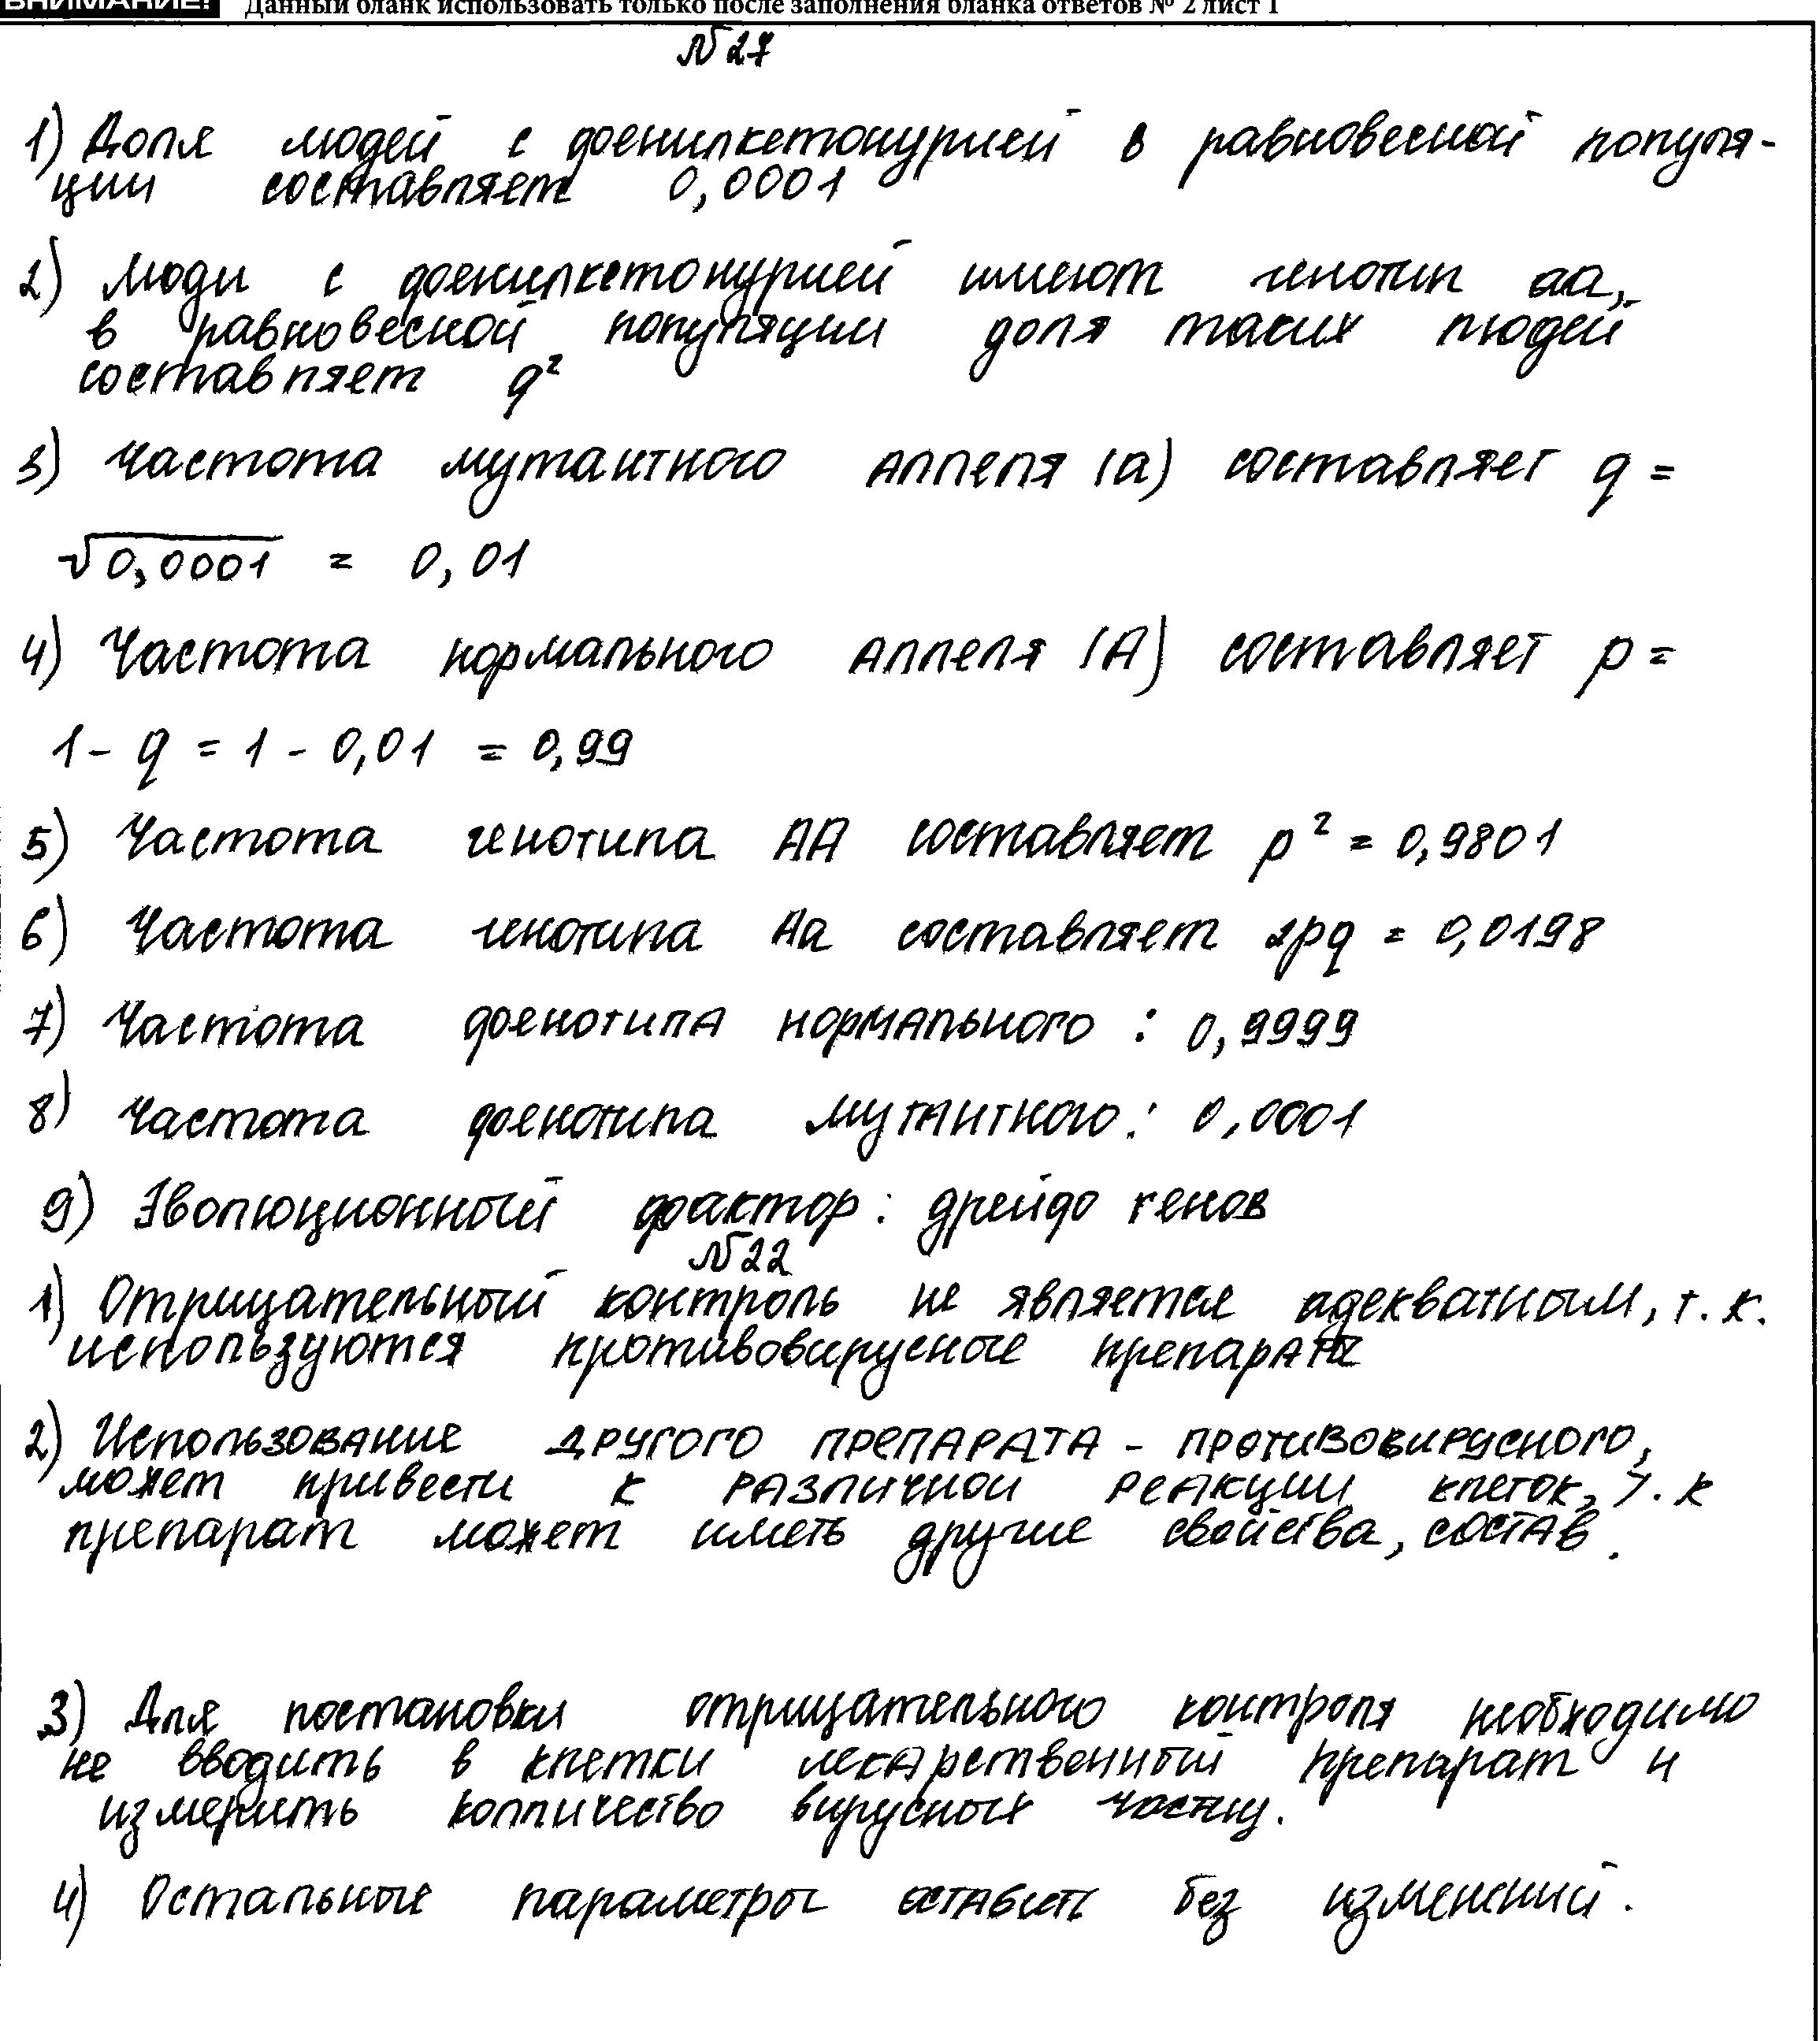 ВНИМАНИЕ! Данный бланк использовать только после заполнения бланка ответов № 2 лист 1
№27
1) Доля людей с фенилкетонурией в равновесной популя-
ции составляет 0,0001
2) Люди с фенилкетонурией имеют генотип аа,
в равновесной популяции доля таких людей
составляет q²
3) Частота мутантного аллеля (а) составляет q =
√0,0001 = 0,01
4) Частота нормального аллеля (А) составляет p =
1 - q = 1 - 0,01 = 0,99
5) Частота генотипа АА составляет p² = 0,9801
6) Частота генотипа Аа составляет 2pq = 0,0198
7) Частота фенотипа нормального : 0,9999
8) Частота фенотипа мутантного: 0,0001
9) Эволюционный фактор: дрейф генов
№22
1) Отрицательный контроль не является адекватным, т. к.
используются противовирусные препараты
2) Использование другого препарата - противовирусного,
может привести к различной реакции клеток, т. к
препарат может иметь другие свойства, состав.
3) Для постановки отрицательного контроля необходимо
не вводить в клетки лекарственный препарат и
измерить колличество вирусных частиц.
4) Остальные параметры оставить без изменений.